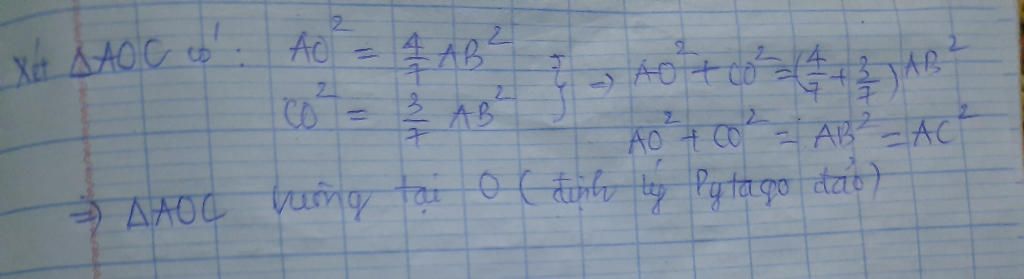 Xét ΔAOC có: AO² = 4/7 AB² } => AO² + CO² = (4/7 + 3/7) AB²
CO² = 3/7 AB²
AO² + CO² = AB² = AC²
=> ΔAOC vuông tại O (định lý Pytago đảo)